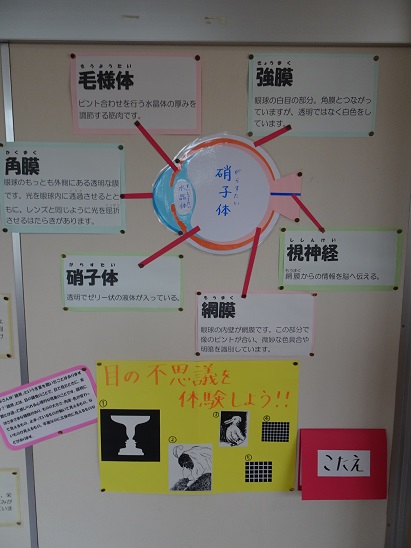 もうようたい
毛様体
ピント合わせを行う水晶体の厚みを
調節する筋肉です。
きょうまく
強膜
眼球の白目の部分。角膜とつながっ
ていますが、透明ではなく白色をし
ています。
かくまく
角膜
眼球のもっとも外側にある透明な膜
です。光を眼球内に通過させるとと
もに、レンズと同じように光を屈折
させるはたらきがあります。
水晶体
硝子体
がらすたい
がらすたい
硝子体
透明でゼリー状の液体が入っている。
ししんけい
視神経
網膜からの情報を脳へ伝える。
もうまく
網膜
眼球の内壁が網膜です。この部分で
像のピントが合い、微妙な色具合や
明暗を識別しています。
目の不思議を
体験しよう!!
①
②
③
④
⑤
こたえ